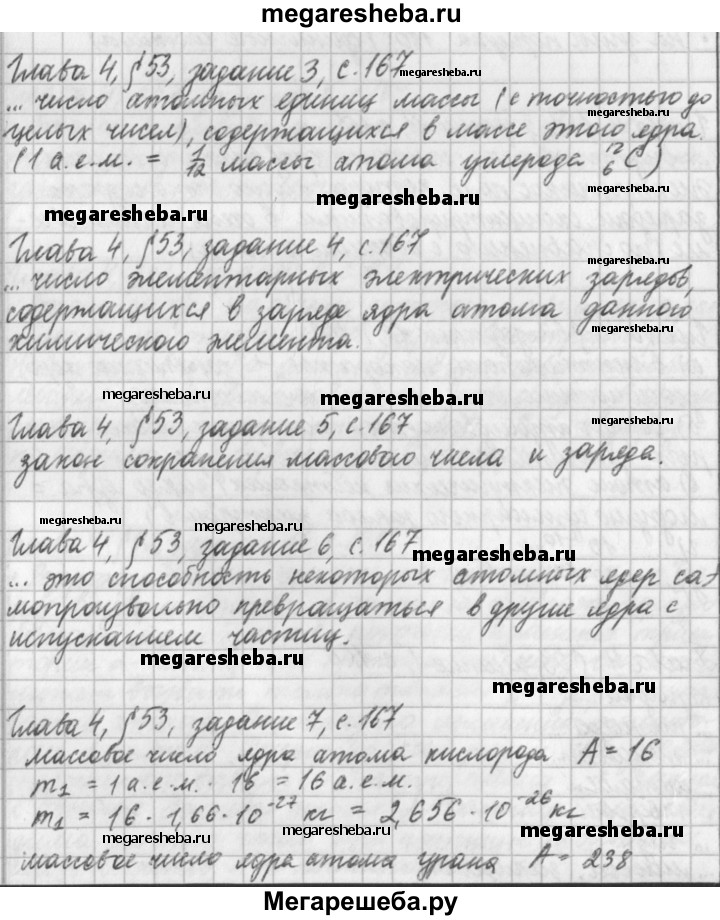 megaresheba.ru
Глава 4, § 53, задание 3, с. 167
megaresheba.ru
... число атомных единиц массы (с точностью до
целых чисел), содержащихся в массе этого ядра.
(1 а.е.м. = 1/12 массы атома углерода ¹²₆C)
megaresheba.ru
megaresheba.ru
Глава 4, § 53, задание 4, с. 167
megaresheba.ru
... число элементарных электрических зарядов,
содержащихся в заряде ядра атома данного
megaresheba.ru
химического элемента.
megaresheba.ru
megaresheba.ru
Глава 4, § 53, задание 5, с. 167
megaresheba.ru
закон сохранения массового числа и заряда.
megaresheba.ru
megaresheba.ru
Глава 4, § 53, задание 6, с. 167
megaresheba.ru
... это способность некоторых атомных ядер са-
мопроизвольно превращаться в другие ядра с
испусканием частиц.
megaresheba.ru
megaresheba.ru
Глава 4, § 53, задание 7, с. 167
массовое число ядра атома кислорода A = 16
m₁ = 1 а.е.м. · 16 = 16 а.е.м.
m₁ = 16 · 1,66 · 10⁻²⁷ кг = 2,656 · 10⁻²⁶ кг
megaresheba.ru
megaresheba.ru
megaresheba.ru
массовое число ядра атома урана A = 238
Мегарешеба.ру